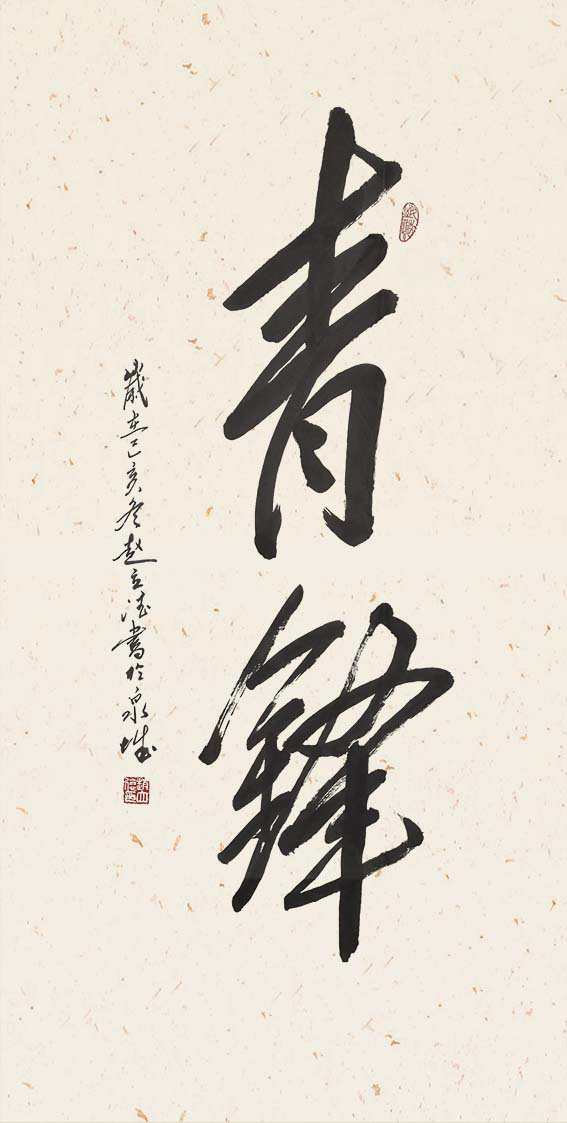 青锋
歲在己亥冬赵立法書於泉城